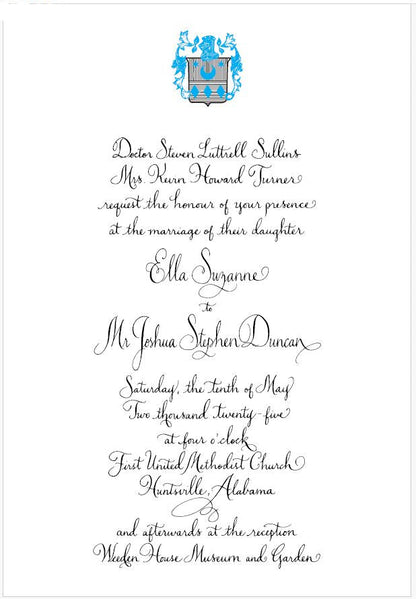 Doctor Steven Luttrell Sullins
Mrs. Kurn Howard Turner
request the honour of your presence
at the marriage of their daughter
Ella Suzanne
to
Mr Joshua Stephen Duncan
Saturday, the tenth of May
Two thousand twenty-five
at four o'clock
First United Methodist Church
Huntsville, Alabama
and afterwards at the reception
Weeden House Museum and Garden